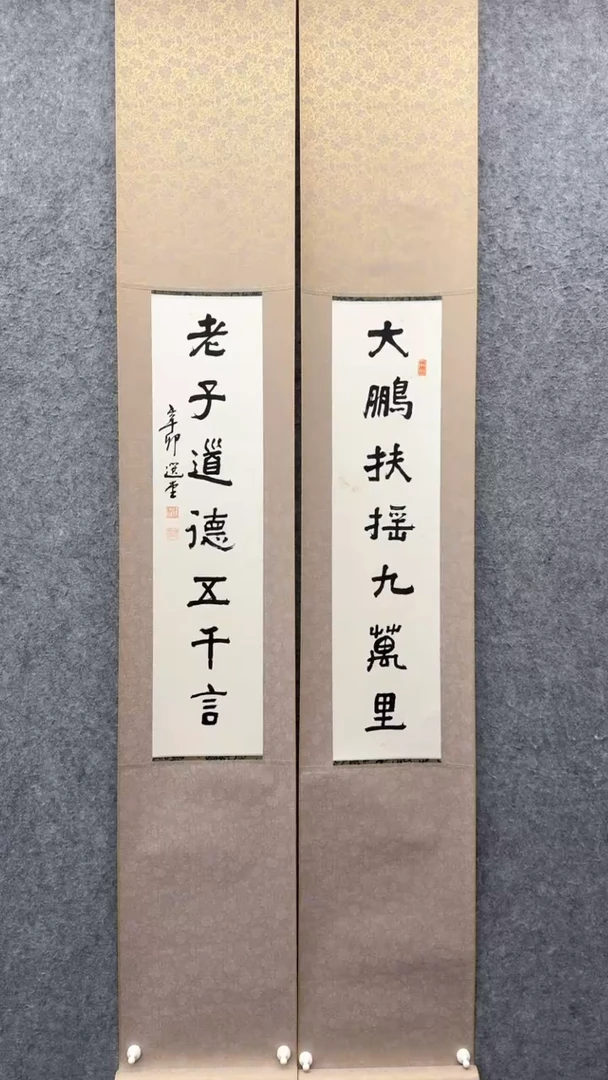 大鵬扶摇九萬里
老子道德五千言
辛卯 選堂